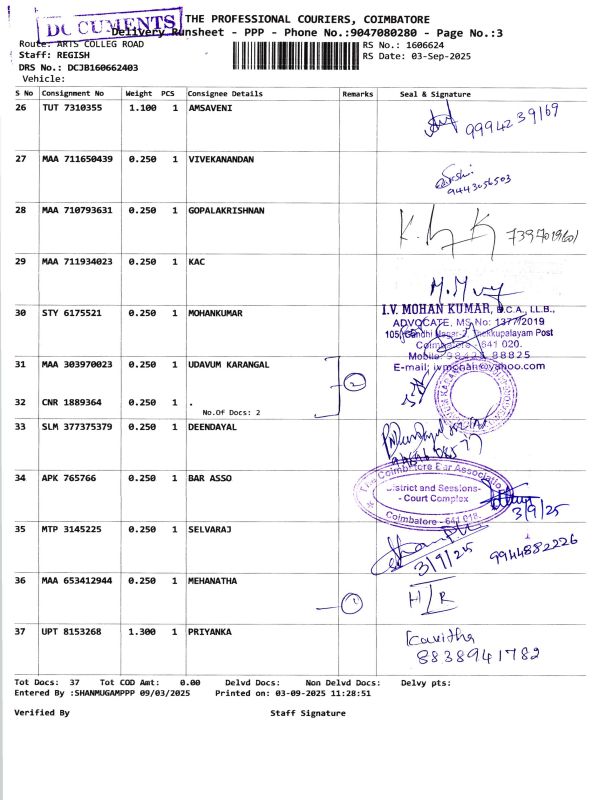 DOCUMENTS
THE PROFESSIONAL COURIERS, COIMBATORE
Delivery Runsheet - PPP - Phone No.:9047080280 - Page No.:3
Route: ARTS COLLEG ROAD
RS No.: 1606624
Staff: REGISH
RS Date: 03-Sep-2025
DRS No.: DCJB160662403
Vehicle:
S No Consignment No Weight PCS Consignee Details Remarks Seal & Signature
26 TUT 7310355 1.100 1 AMSAVENI
9994239169
27 MAA 711650439 0.250 1 VIVEKANANDAN
9443056503
28 MAA 710793631 0.250 1 GOPALAKRISHNAN
29 MAA 711934023 0.250 1 KAC
30 STY 6175521 0.250 1 MOHANKUMAR
I.V. MOHAN KUMAR, B.C.A., LL.B.,
ADVOCATE, MS No: 1377/2019
Coimbatore - 641 020.
E-mail: ivmohan@yahoo.com
31 MAA 303970023 0.250 1 UDAVUM KARANGAL
2
32 CNR 1889364 0.250 1 .
No.Of Docs: 2
33 SLM 377375379 0.250 1 DEENDAYAL
34 APK 765766 0.250 1 BAR ASSO
The Coimbatore Bar Association
District and Sessions-
- Court Complex
Coimbatore - 641 018.
3/9/25
35 MTP 3145225 0.250 1 SELVARAJ
3/9/25
9944882226
36 MAA 653412944 0.250 1 MEHANATHA
1
H/R
37 UPT 8153268 1.300 1 PRIYANKA
Kavitha
8838941782
Tot Docs: 37 Tot COD Amt: 0.00 Delvd Docs: Non Delvd Docs: Delvy pts:
Entered By :SHANMUGAMPPP 09/03/2025 Printed on: 03-09-2025 11:28:51
Verified By Staff Signature